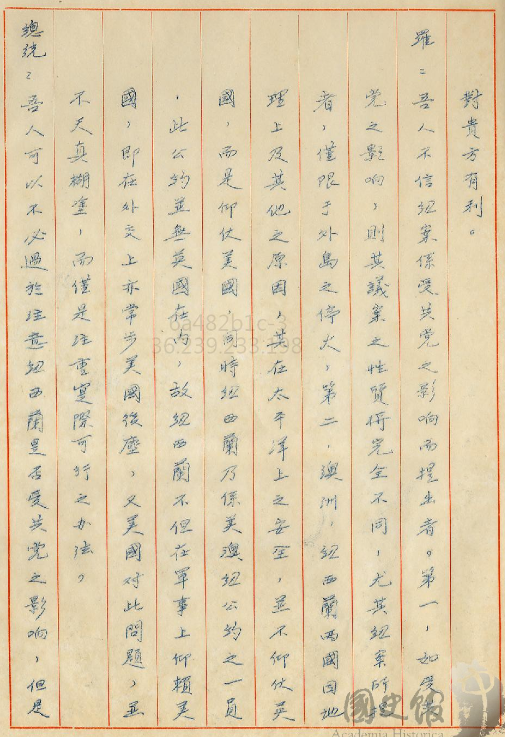 對貴方有利。
羅：吾人不信紐案係受共党之影响而提出者。第一，如受共
党之影响，則其議案之性質將完全不同，尤其紐案所
者，僅限于外島之停火，第二，澳洲，紐西蘭兩國因地
理上及其他之原因，其在太平洋上之安全，並不仰仗英
國，而是仰仗美國，同時紐西蘭乃係美澳紐公約之一員
，此公約並無英國在內，故紐西蘭不但在軍事上仰賴美
國，即在外交上亦常步美國後塵，又美國对此問題，並
不天真糊塗，而僅是注重實際可行之办法。
總統：吾人可以不必過於注意紐西蘭是否受共党之影响，但是
6a482b1c-3
36.239.233.198
國史館
Academia Historica